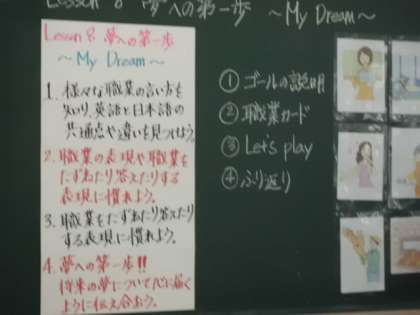 Lesson 8 夢への第一歩 ～My Dream～
Lesson 8 夢への第一歩
～My Dream～
1. 様々な職業の言い方を
知り、英語と日本語の
共通点や違いを見つけよう。
2. 職業の表現や職業を
たずねたり答えたりする
表現に慣れよう。
3. 職業をたずねたり答えたり
する表現に慣れよう。
4. 夢への第一歩!!
将来の夢について
ように伝え合おう。
① ゴールの説明
② 職業カード
③ Let's play
④ ふり返り